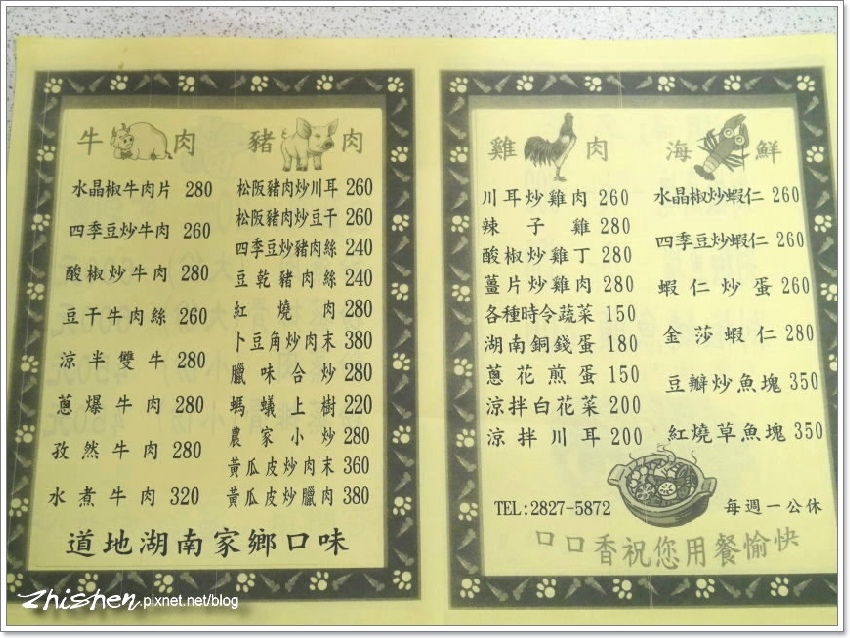 牛肉
水晶椒牛肉片 280
四季豆炒牛肉 260
酸椒炒牛肉 280
豆干牛肉絲 260
涼半雙牛 280
蔥爆牛肉 280
孜然牛肉 280
水煮牛肉 320
豬肉
松阪豬肉炒川耳 260
松阪豬肉炒豆干 260
四季豆炒豬肉絲 240
豆乾豬肉絲 240
紅燒肉 280
卜豆角炒肉末 380
臘味合炒 280
螞蟻上樹 220
農家小炒 280
黃瓜皮炒肉末 360
黃瓜皮炒臘肉 380
道地湖南家鄉口味
雞肉
川耳炒雞肉 260
辣子雞 280
酸椒炒雞丁 280
薑片炒雞肉 280
各種時令蔬菜 150
湖南銅錢蛋 180
蔥花煎蛋 150
涼拌白花菜 200
涼拌川耳 200
海鮮
水晶椒炒蝦仁 260
四季豆炒蝦仁 260
蝦仁炒蛋 260
金莎蝦仁 280
豆瓣炒魚塊 350
紅燒草魚塊 350
TEL:2827-5872
每週一公休
口口香祝您用餐愉快
zhishen.pixnet.net/blog